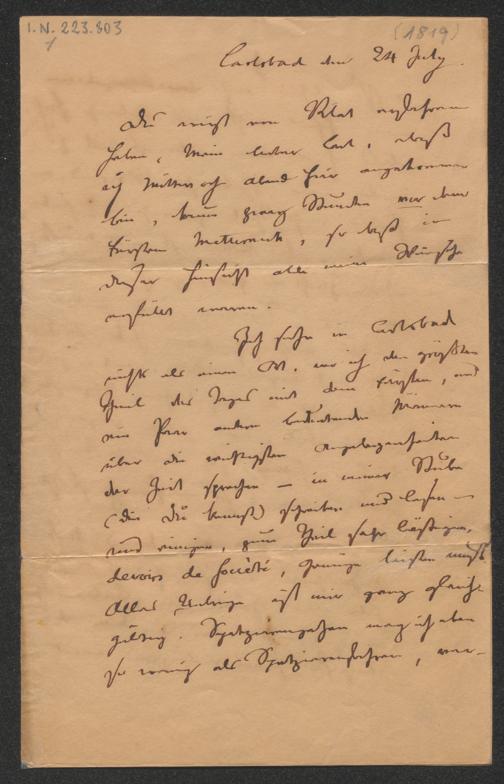 I.N. 223.803
1
(1819)
Carlsbad den 24 July.
Du mußt von Pilat erfahren
haben, Mein lieber Carl, daß
ich Mittwoch Abend hier angekommen
bin, kaum zwey Stunden vor dem
Fürsten Metternich, so daß in
dieser Hinsicht alle meine Wünsche
erfüllt waren.
Ich sehe in Carlsbad
nichts als einen Ort, wo ich den größten
Theil des Tages mit dem Fürsten, und
ein Paar andern bedeutenden Männern
über die wichtigsten Angelegenheiten
der Zeit sprechen – in meiner Stube
(die Du kennst) schreiben und lesen –
und einigen, zum Theil sehr lästigen,
devoirs de Société, Genüge leisten muß.
Alles Uebrige ist mir ganz gleich-
gültig. Spatzierengehen mag ich eben
so wenig als Spatzierenfahren,